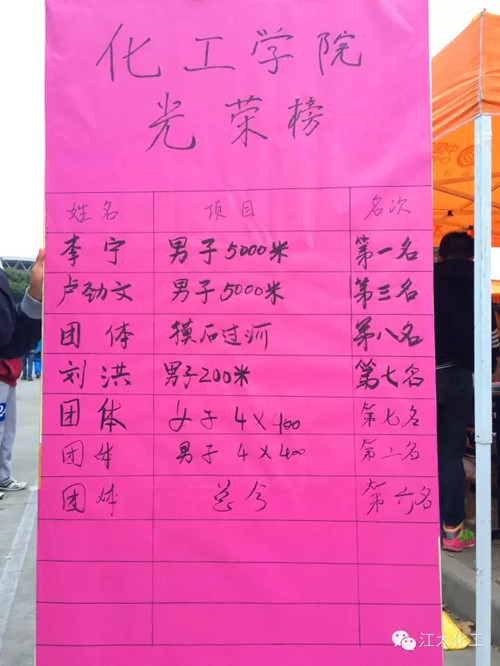 化工学院
光荣榜
姓名 项目 名次
李宁 男子5000米 第一名
卢劲文 男子5000米 第三名
团体 摸石过河 第八名
刘洪 男子200米 第七名
团体 女子4×400 第七名
团体 男子4×400 第二名
团体 总分 第六名
江大化工